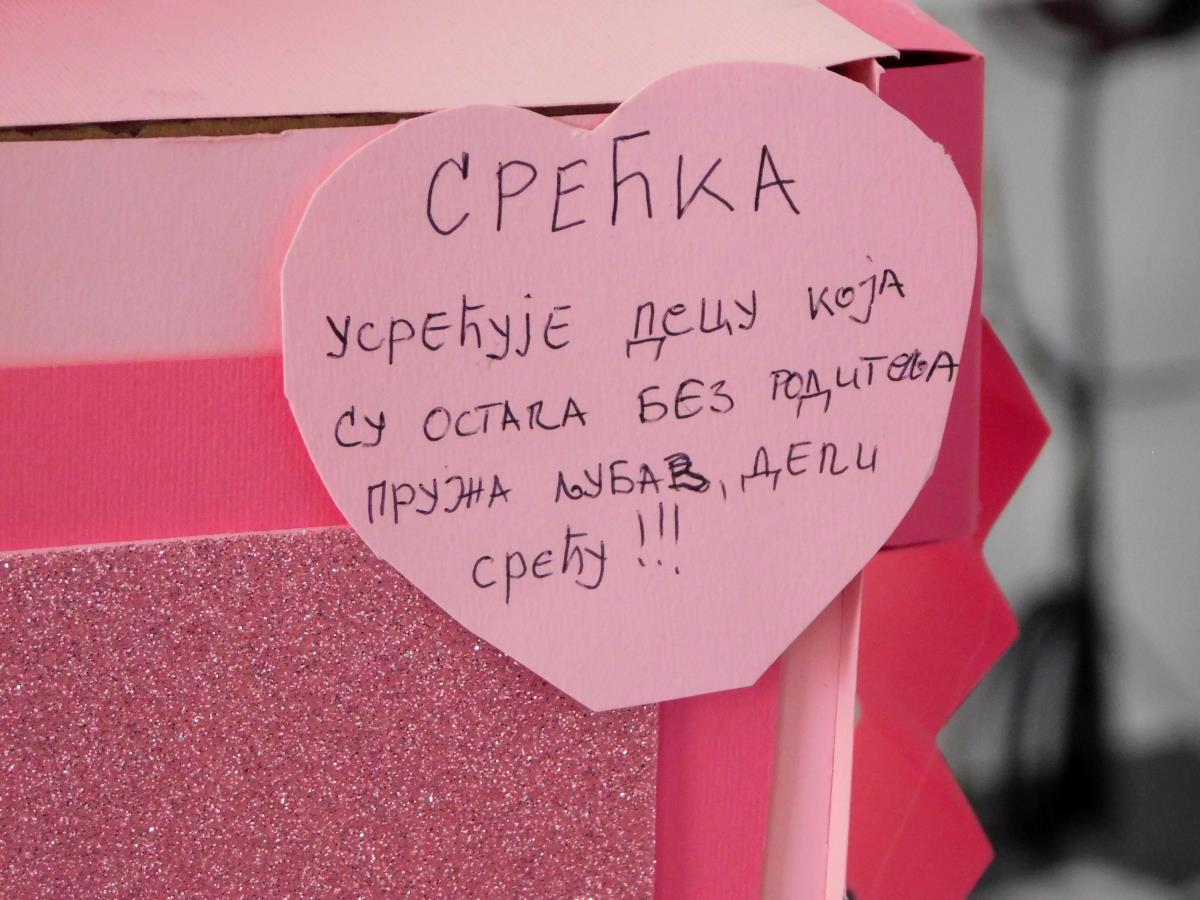 СРЕЋКА
УСРЕЋУЈЕ ДЕЦУ КОЈА
СУ ОСТАЛА БЕЗ РОДИТЕЉА
ПРУЖА ЉУБАВ, ДЕЛИ
СРЕЋУ!!!